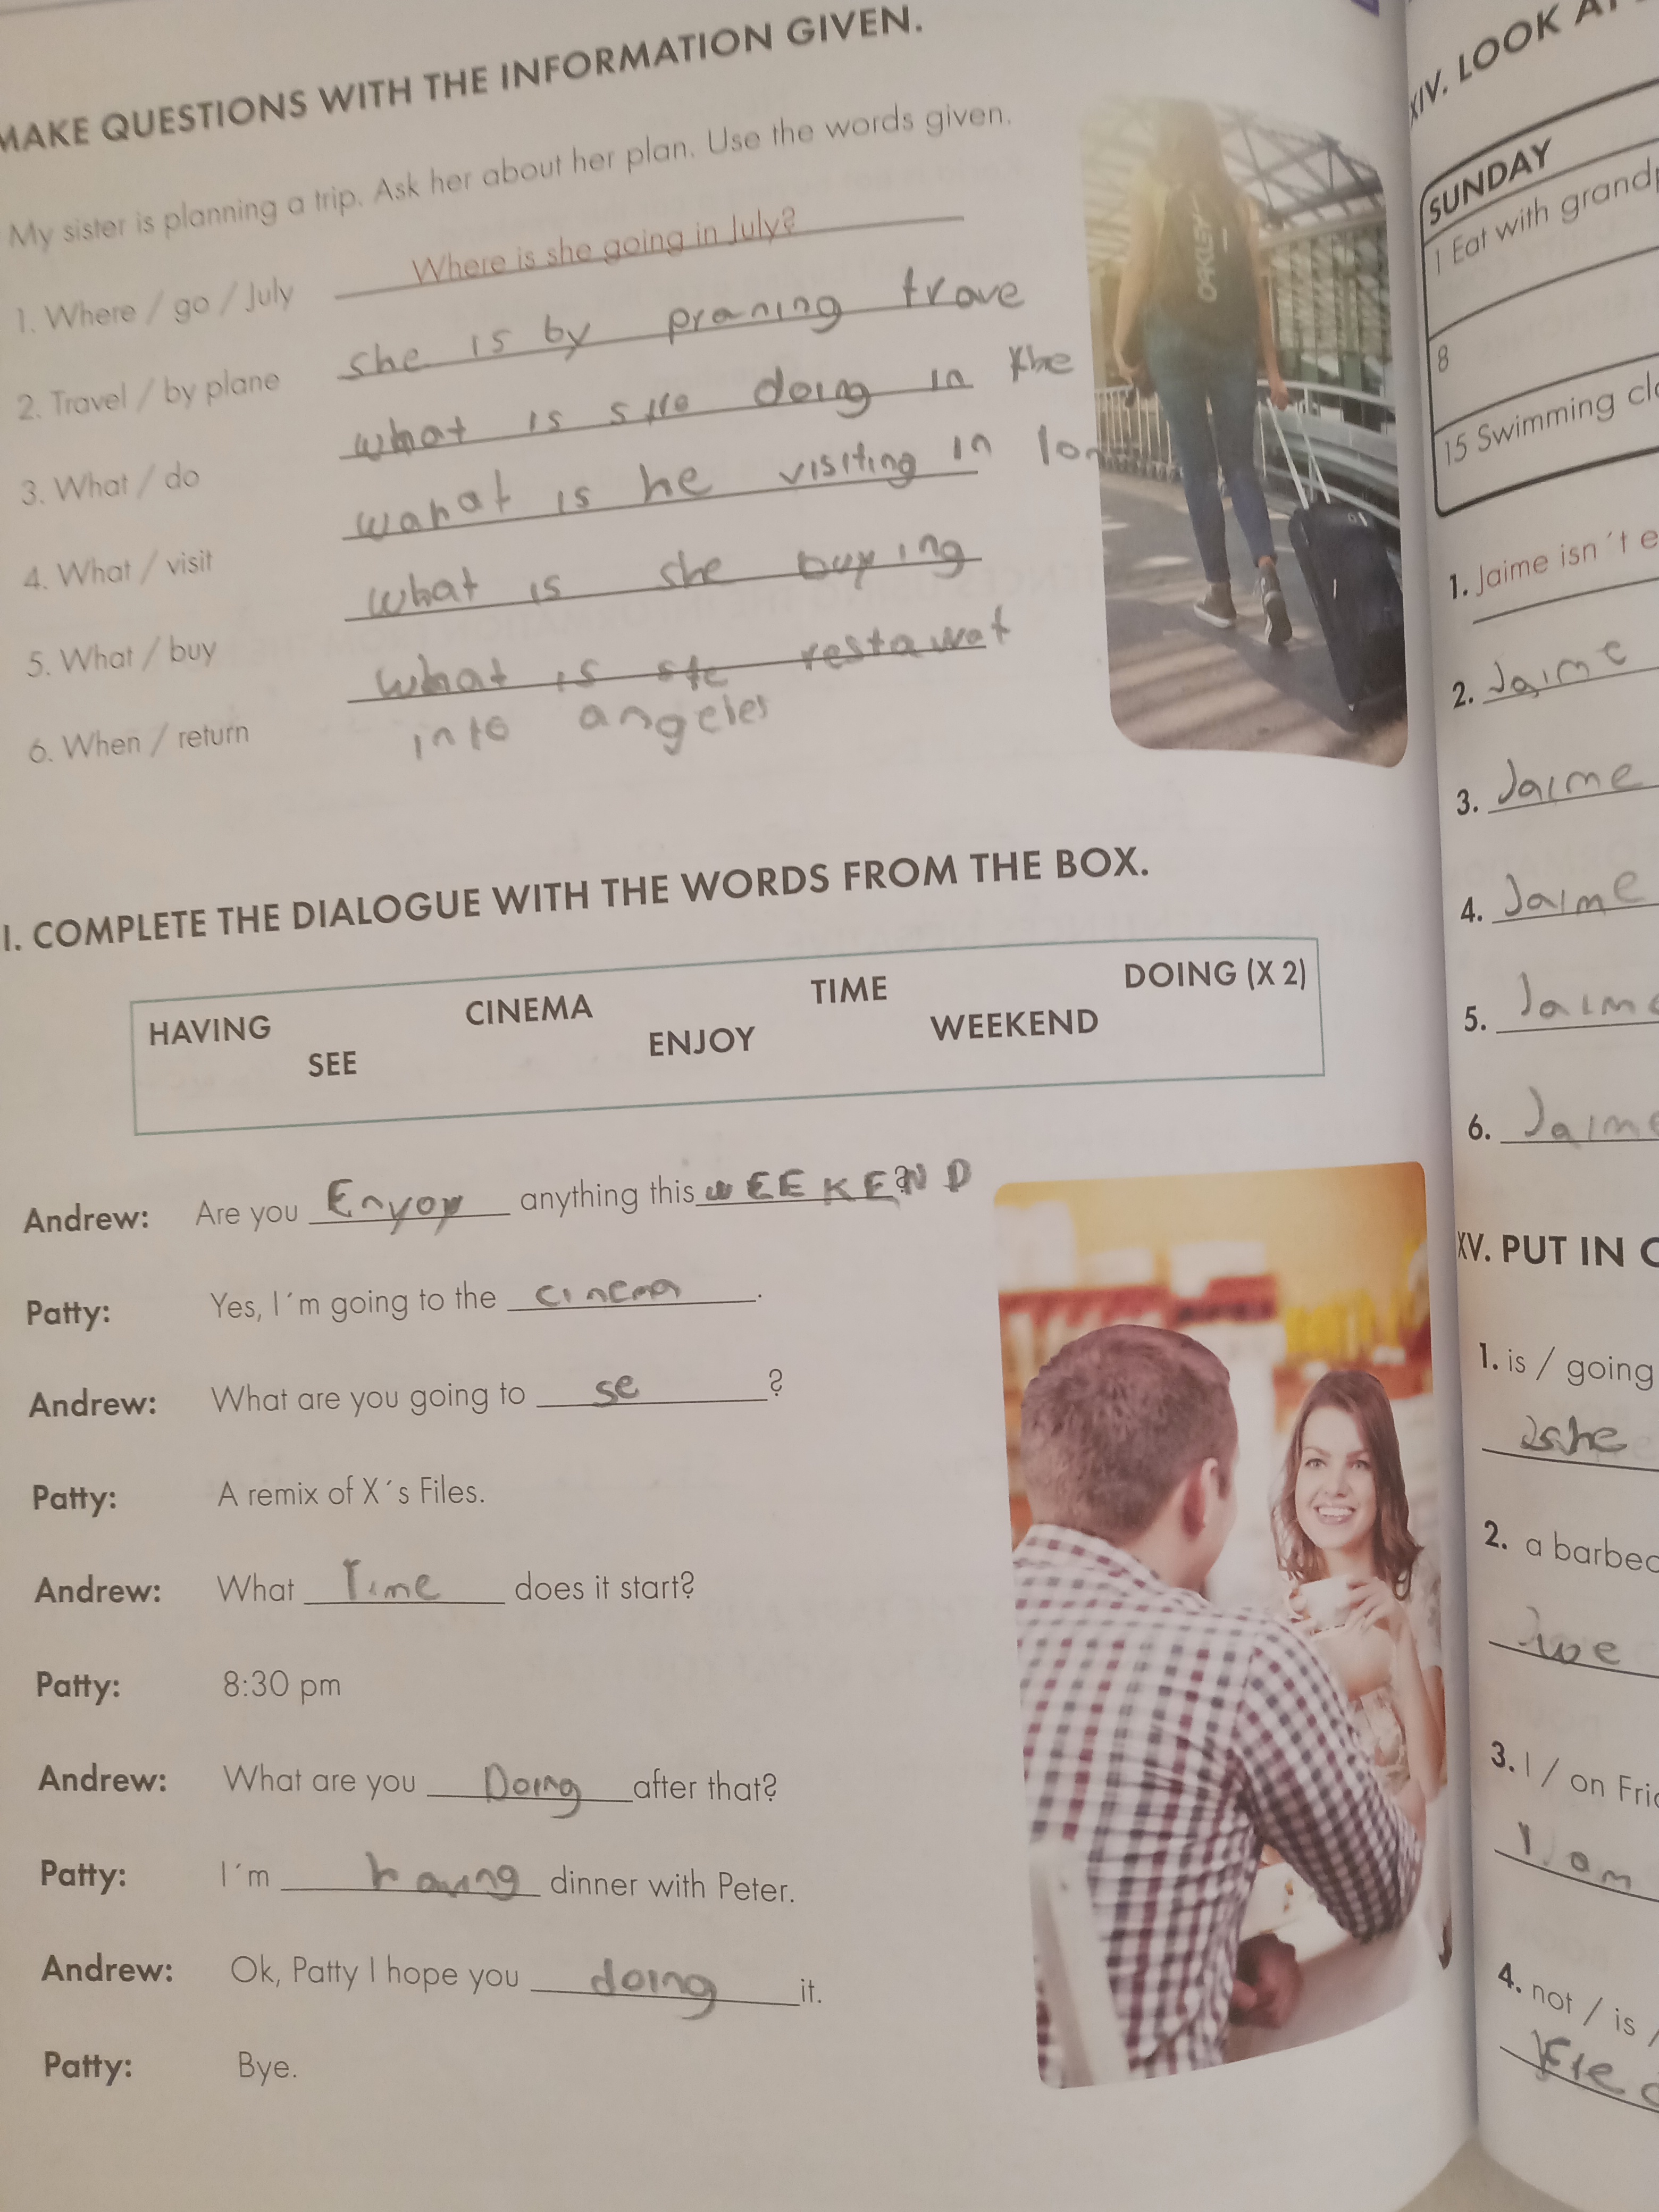 MAKE QUESTIONS WITH THE INFORMATION GIVEN.
My sister is planning a trip. Ask her about her plan. Use the words given.
1. Where / go / July Where is she going in July?
2. Travel / by plane she is by praning trave
3. What / do what is she doing in the
4. What / visit wahat is he visiting in lon
5. What / buy what is she buying
6. When / return what is ste restawat
into angeles
I. COMPLETE THE DIALOGUE WITH THE WORDS FROM THE BOX.
HAVING CINEMA TIME DOING (X 2)
SEE ENJOY WEEKEND
Andrew: Are you Enyoy anything this WEEKEND ?
Patty: Yes, I´m going to the cinema.
Andrew: What are you going to se ?
Patty: A remix of X´s Files.
Andrew: What Time does it start?
Patty: 8:30 pm
Andrew: What are you Doing after that?
Patty: I´m having dinner with Peter.
Andrew: Ok, Patty I hope you doing it.
Patty: Bye.
OAKLEY
XIV. LOOK AT
SUNDAY
1 Eat with grandp
8
15 Swimming cl
1. Jaime isn´t e
2. Jaime
3. Jaime
4. Jaime
5. Jaime
6. Jaime
XV. PUT IN O
1. is / going
she
2. a barbec
we
3. I / on Fri
I am
4. not / is /